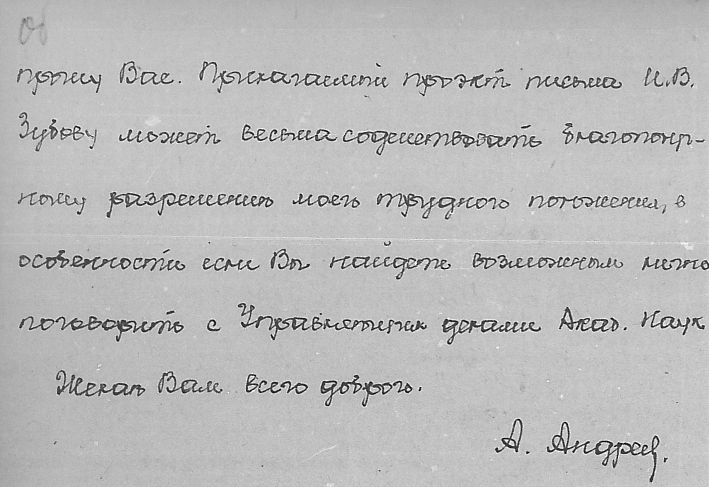 об
прошу Вас. Прилагаемый проэкт письма И.В.
Зубову может весьма содействовать благоприят-
ному разрешению моего трудного положения, в
особенности если Вы найдете возможным лично
поговорить с Управляющим делами Акад. Наук
Желаю Вам всего доброго.
А. Андреев.